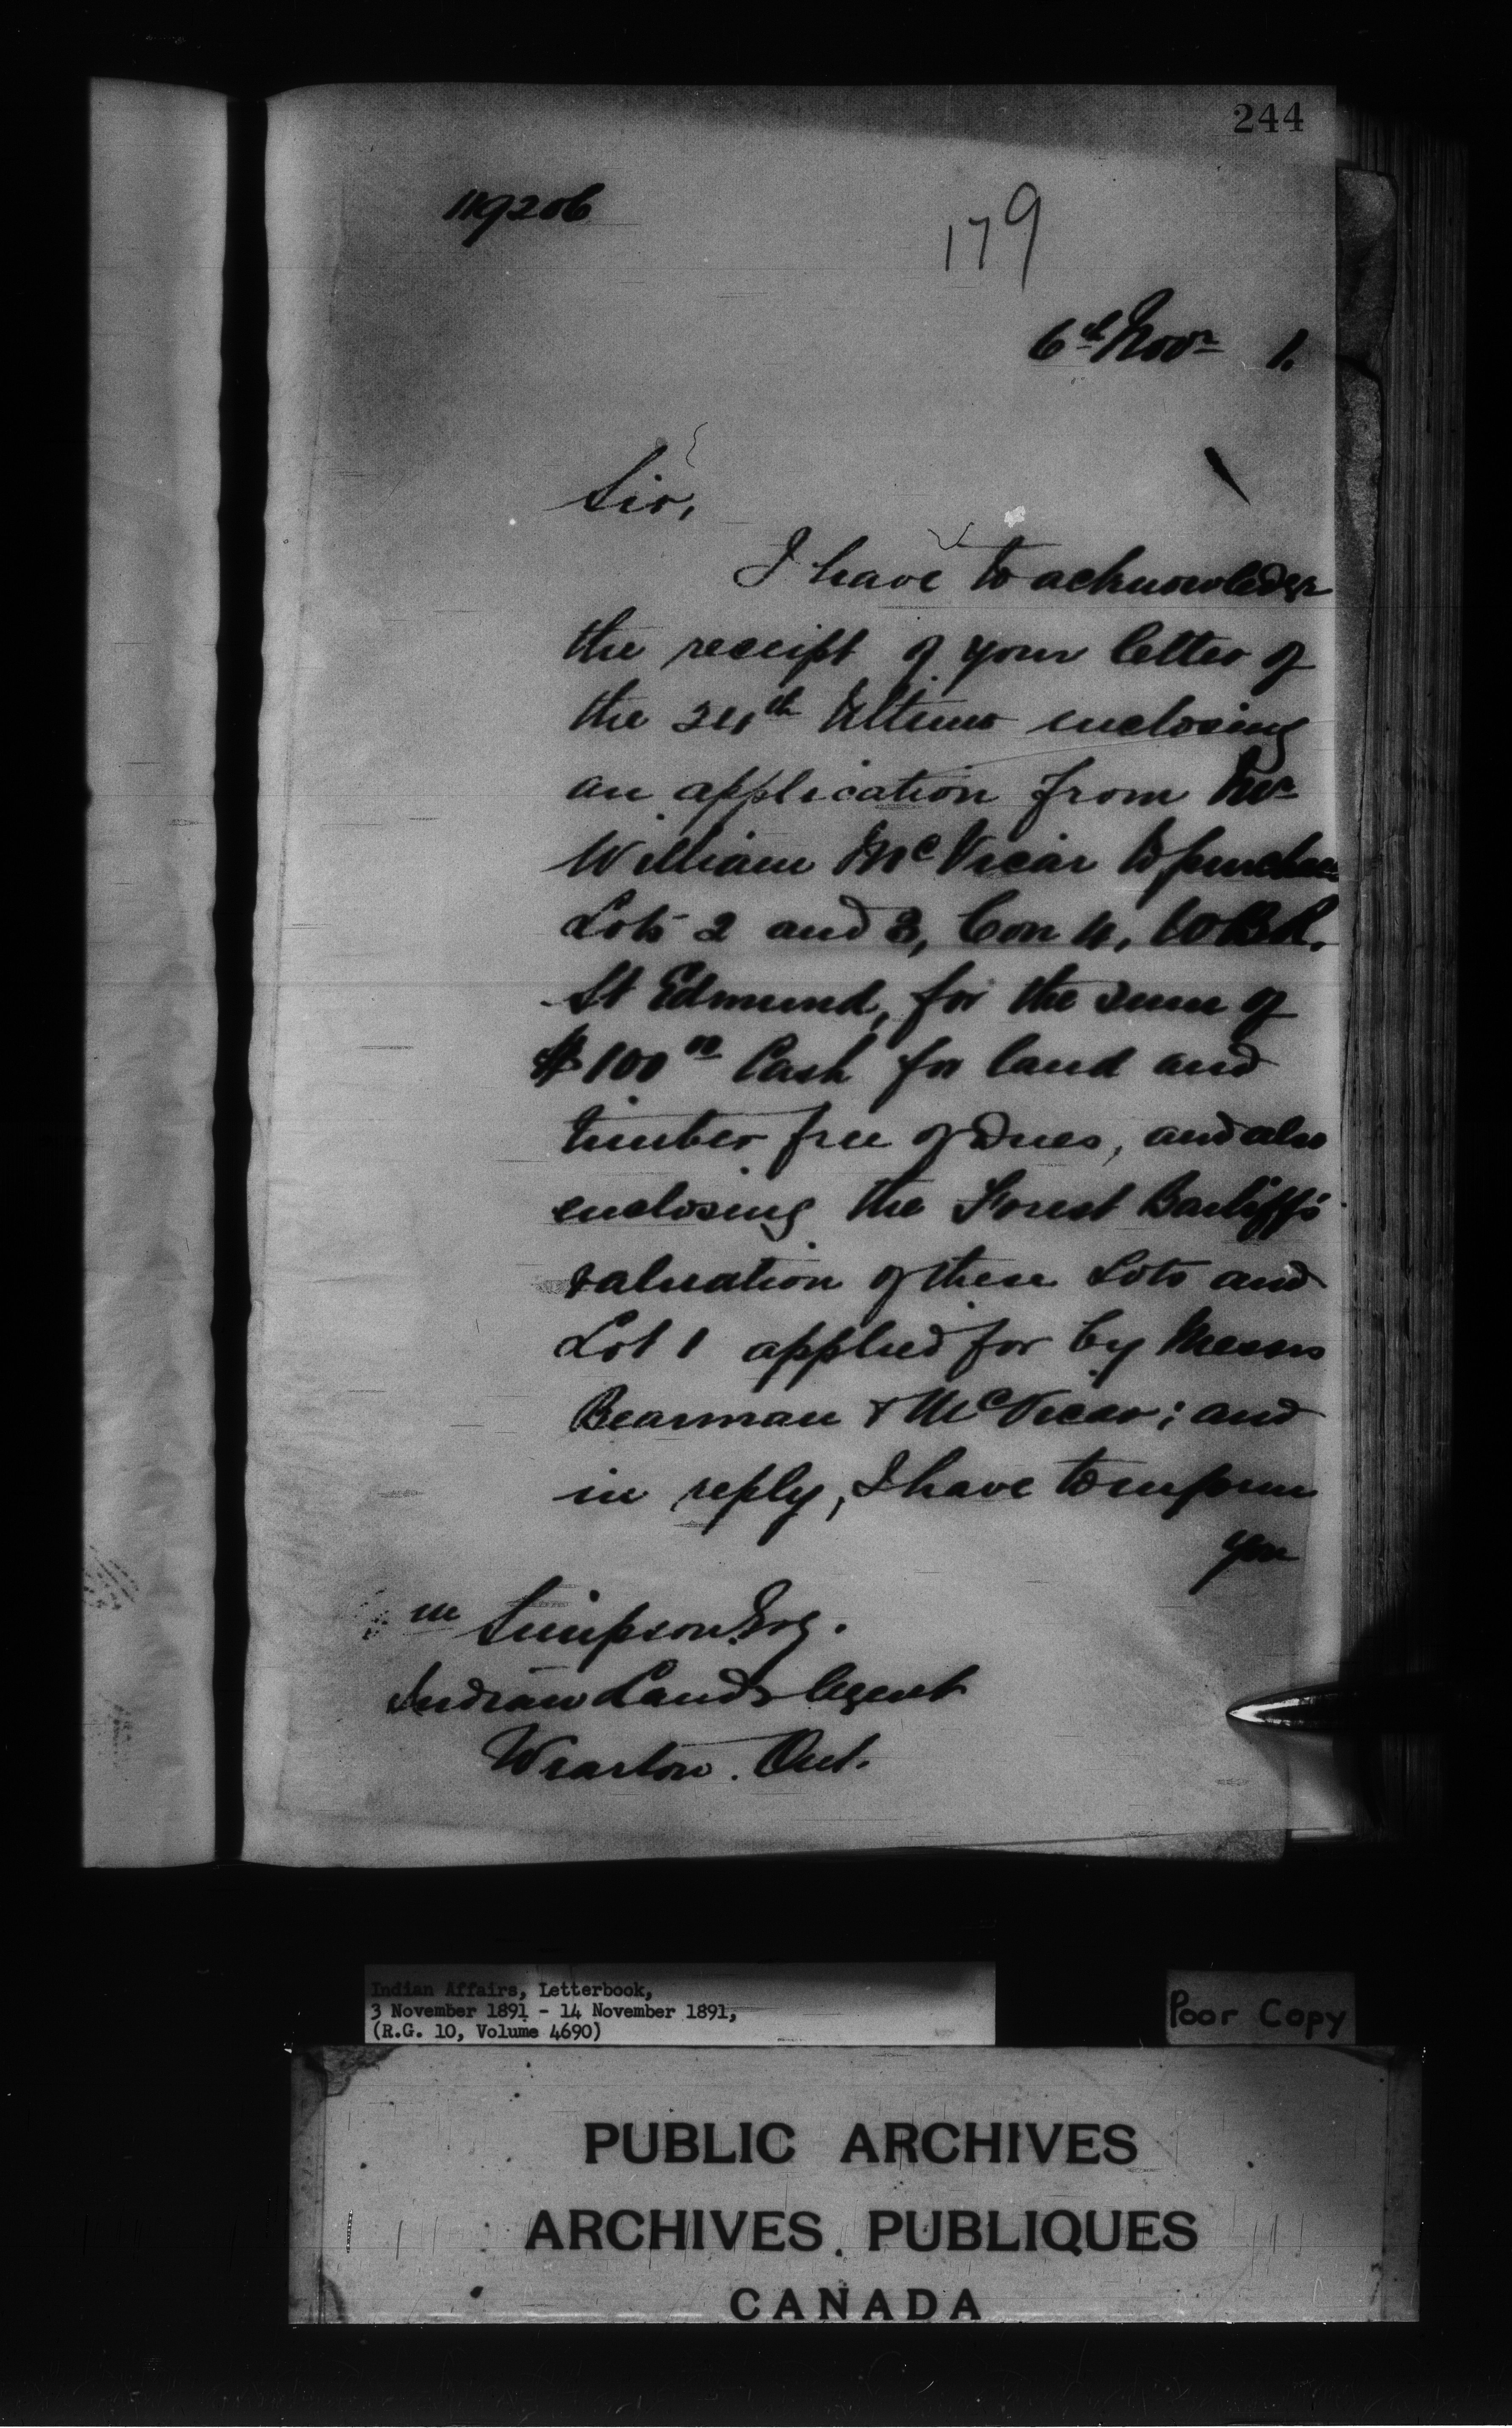 244
119206
179
6th Novr 1.
Sir,
I have to acknowledge
the receipt of your letter of
the 24th Ultimo enclosing
an application from Mr
William McVicar to purchase
Lots 2 and 3, Con 4, W B R.
St Edmund, for the sum of
$100 00 Cash for land and
timber free of dues, and also
enclosing the Forest Bailiff's
valuation of these Lots and
Lot 1 applied for by Messrs
Bearman & McVicar; and
in reply, I have to inform
you
m Simpson Esq.
Indian Lands Agent
Wiarton. Ont.
Indian Affairs, Letterbook,
3 November 1891 - 14 November 1891,
(R.G. 10, Volume 4690)
Poor Copy
PUBLIC ARCHIVES
ARCHIVES PUBLIQUES
CANADA